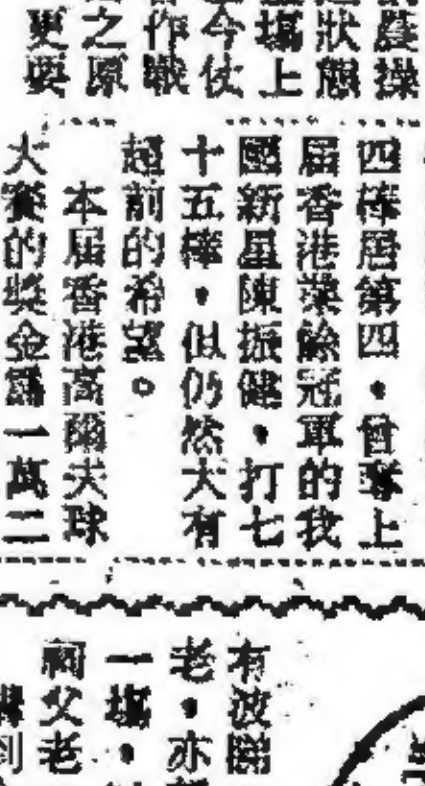 農操
狀態
壇上
今仗
作戰
之原
更要
四棒居第四，曾奪上
屆香港業餘冠軍的我
國新星陳振健，打七
十五棒，但仍然大有
超前的希望。
本屆香港高爾夫球
大賽的獎金爲一萬二
有波
老，亦
一場，
父老